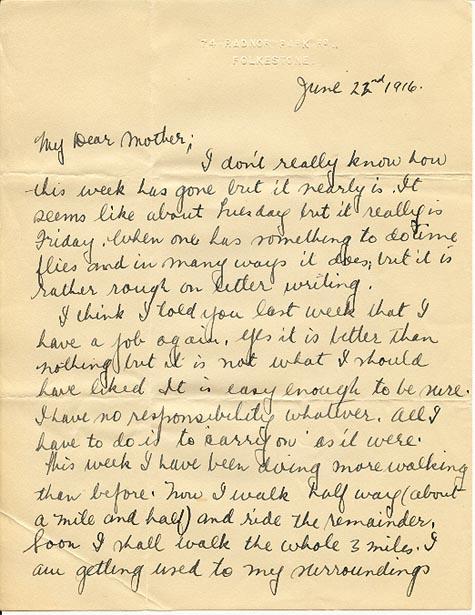 74 RADNOR PARK RD.,
FOLKESTONE.
June 22nd 1916.
My Dear Mother;
I don't really know how
this week has gone but it nearly is. It
seems like about Tuesday but it really is
Friday. When one has something to do time
flies and in many ways it does, but it is
rather rough on letter writing.
I think I told you last week that I
have a job again. Yes it is better than
nothing but it is not what I should
have liked It is easy enough to be sure.
I have no responsibility whatever. All I
have to do is to "carry on" as it were.
This week I have been doing more walking
than before. Now I walk half way (about
a mile and half) and ride the remainder.
Soon I shall walk the whole 3 miles. I
am getting used to my surroundings